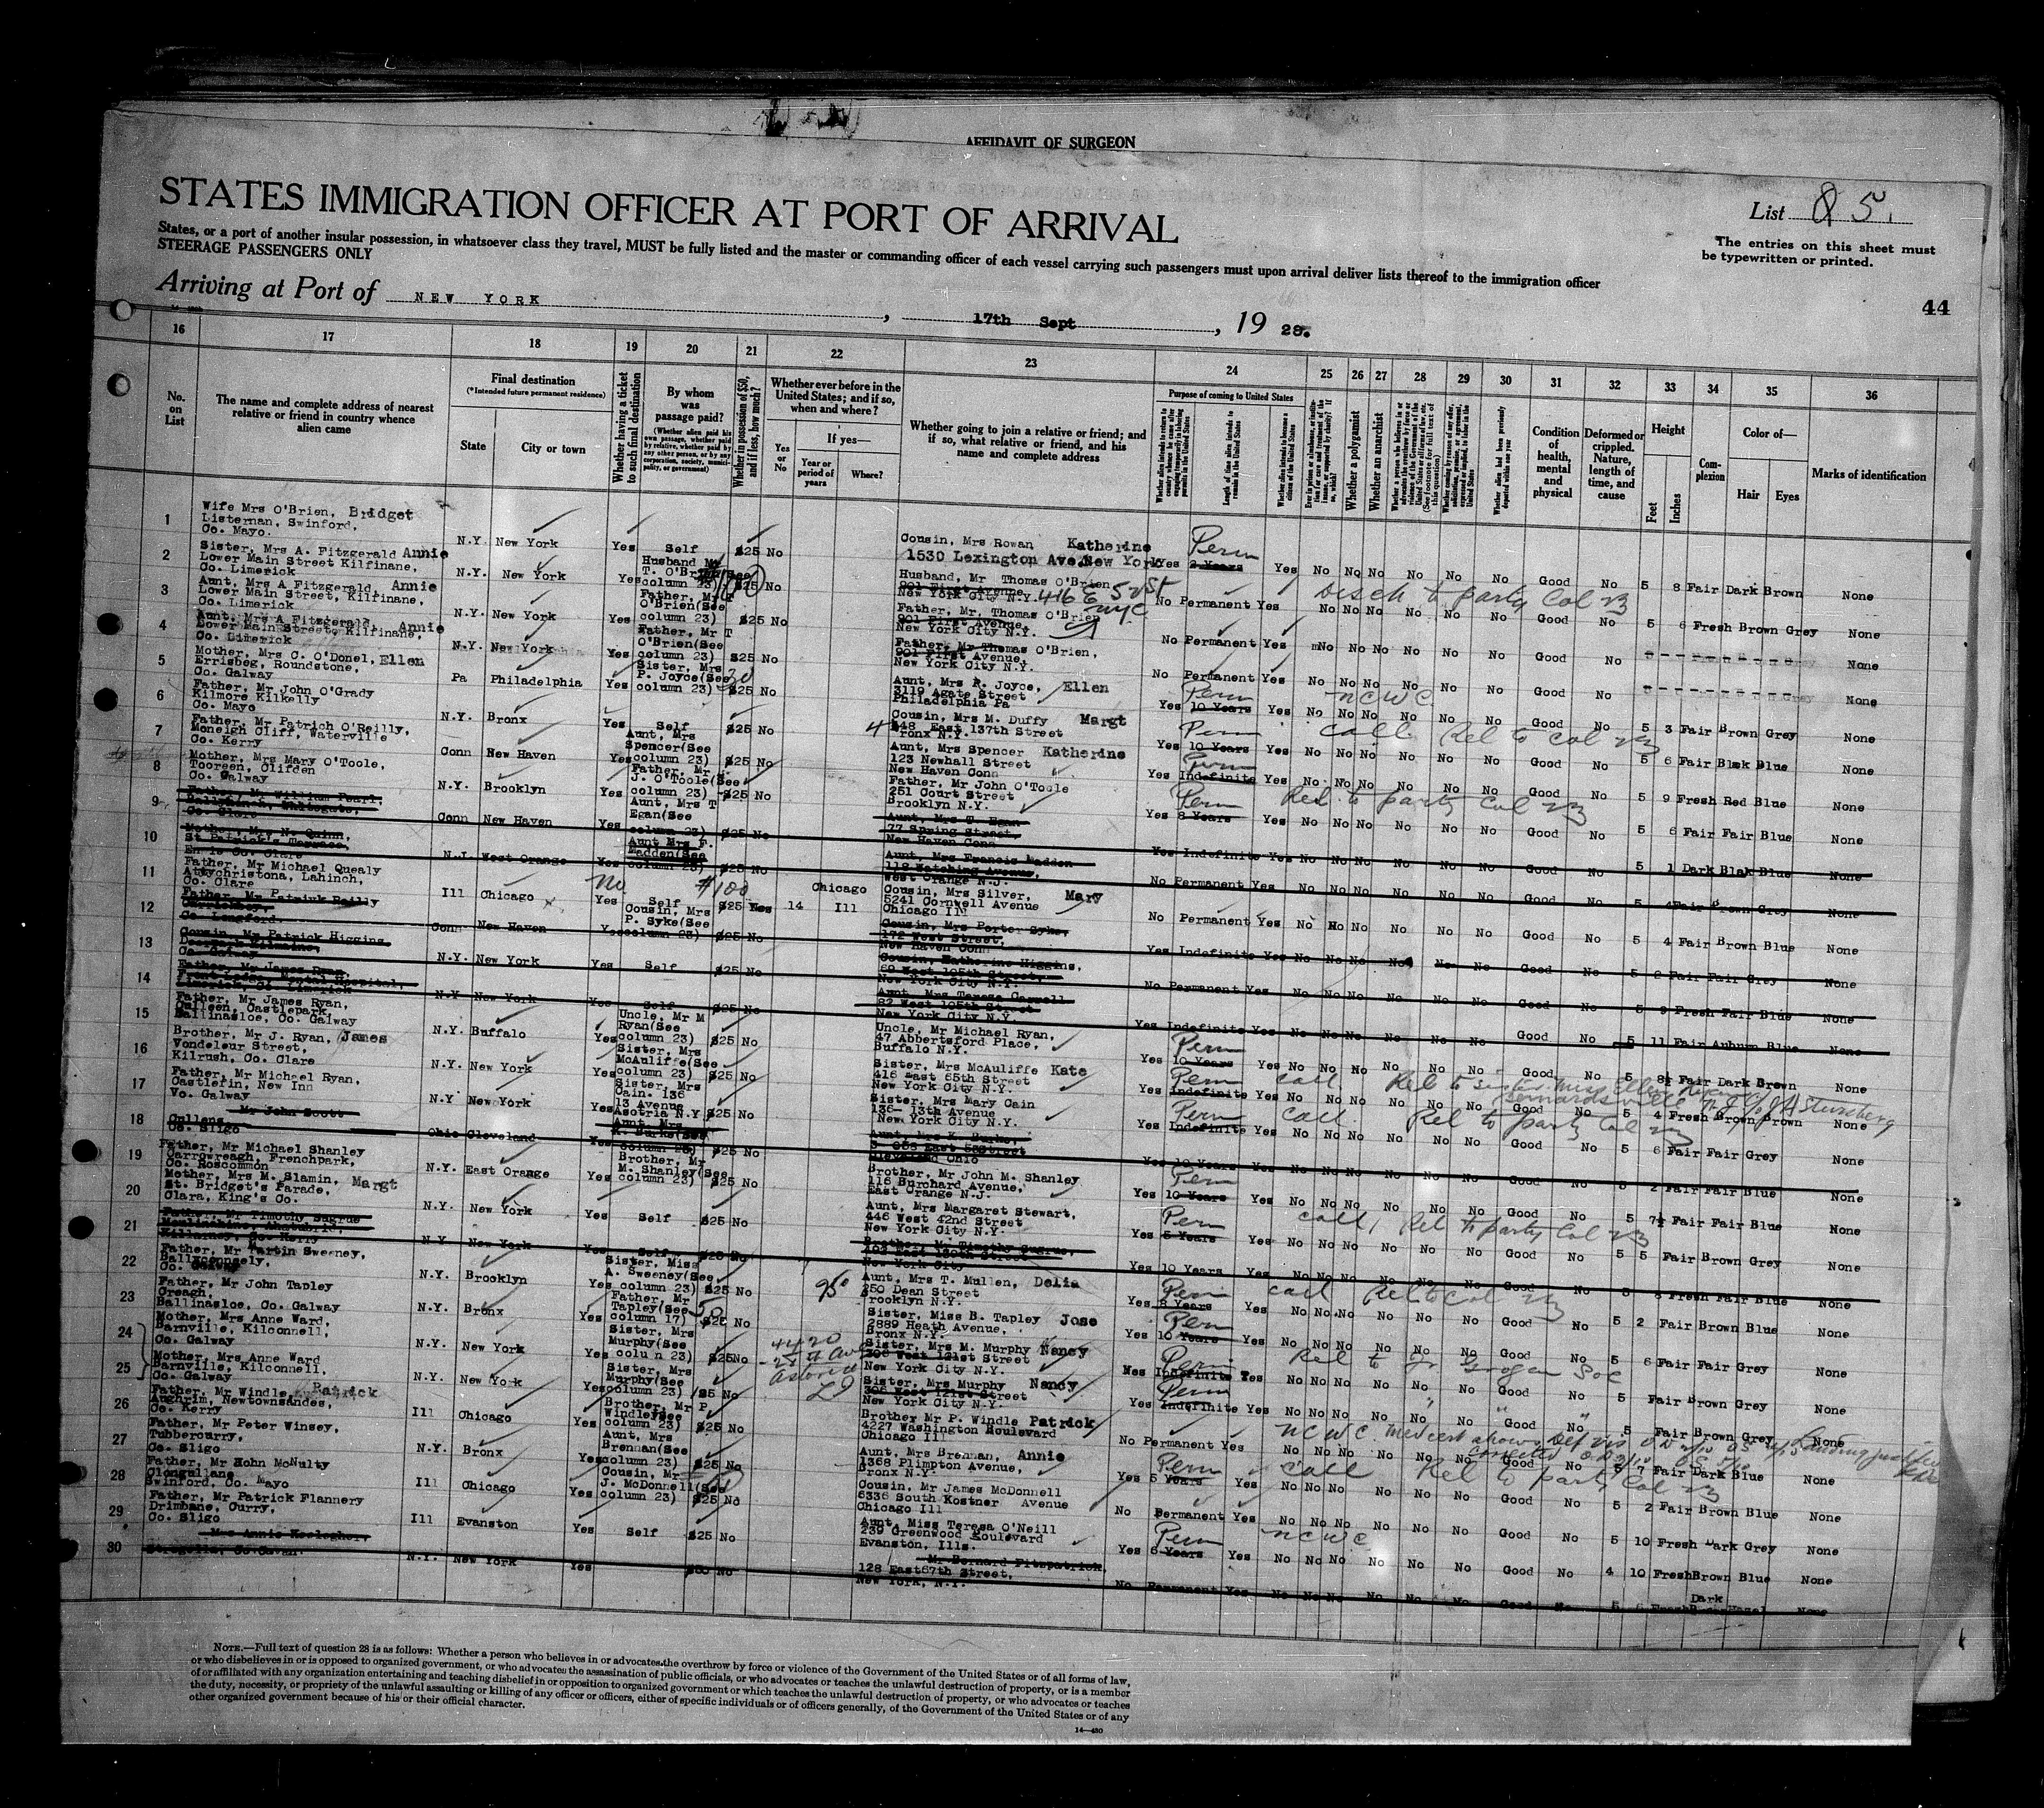 AFFIDAVIT OF SURGEON
STATES IMMIGRATION OFFICER AT PORT OF ARRIVAL
List 85.
States, or a port of another insular possession, in whatsoever class they travel, MUST be fully listed and the master or commanding officer of each vessel carrying such passengers must upon arrival deliver lists thereof to the immigration officer
STEERAGE PASSENGERS ONLY
The entries on this sheet must
be typewritten or printed.
Arriving at Port of NEW YORK, 17th Sept, 19 28.
44
16 17 18 19 20 21 22 23 24 25 26 27 28 29 30 31 32 33 34 35 36
No. on List
The name and complete address of nearest relative or friend in country whence alien came
Final destination
(*Intended future permanent residence)
State
City or town
Whether having a ticket to such final destination
By whom was passage paid?
(Whether alien paid his own passage, whether paid by relative, whether paid by any other person, or by any corporation, society, municipality, or government)
Whether in possession of $50, and if less, how much?
Whether ever before in the United States; and if so, when and where?
Yes or No
If yes—
Year or period of years
Where?
Whether going to join a relative or friend; and if so, what relative or friend, and his name and complete address
Purpose of coming to United States
Length of time alien intends to remain in the United States
Whether a polygamist
Whether an anarchist
Condition of health, mental and physical
Deformed or crippled. Nature, length of time, and cause
Height
Feet
Inches
Complexion
Color of—
Hair
Eyes
Marks of identification
1 Wife Mrs O'Brien, Bridget
Listernan, Swinford,
Co. Mayo.
N.Y. New York Yes Self $25 No
Cousin, Mrs Rowan Katherine
1530 Lexington Ave, New York
Perm
Yes 2 Years Yes No No No No No No Good No 5 8 Fair Dark Brown None
2 Sister, Mrs A. Fitzgerald Annie
Lower Main Street Kilfinane,
Co. Limerick
N.Y. New York Yes Husband Mr T. O'Brien (See column 23) $25 No
Husband, Mr Thomas O'Brien
901 First Avenue
New York City N.Y. 416 E 5 St
NYC
No Permanent Yes No No No No No No Good No 5 6 Fresh Brown Grey None
Disch to party Col 23
3 Aunt, Mrs A Fitzgerald, Annie
Lower Main Street, Kilfinane,
Co. Limerick
N.Y. New York Yes Father, Mr T O'Brien(See column 23) $25 No
Father, Mr. Thomas O'Brien
901 First Avenue,
New York City N.Y.
No Permanent Yes No No No No No No Good No None
4 Aunt, Mrs A Fitzgerald, Annie
Lower Main Street, Kilfinane,
Co. Limerick
N.Y. New York Yes Father, Mr T O'Brien(See column 23) $25 No
Father, Mr Thomas O'Brien,
901 First Avenue,
New York City N.Y.
No Permanent Yes No No No No No No Good No None
5 Mother, Mrs C. O'Donel, Ellen
Errisbeg, Roundstone,
Co. Galway
Pa Philadelphia Yes Sister, Mrs P. Joyce(See column 23) $25 No
Aunt, Mrs R. Joyce, Ellen
3119 Agate Street
Philadelphia Pa
Perm N C W C
Yes 10 Years Yes No No No No No No Good No 5 3 Fair Brown Grey None
6 Father, Mr John O'Grady
Kilmore Kilkelly
Co. Mayo
N.Y. Bronx Yes Self $25 No
Cousin, Mrs M. Duffy Margt
448 East 137th Street
Bronx N.Y.
Perm Call Rel to Col 23
Yes 10 Years Yes No No No No No No Good No 5 6 Fair Blak Blue None
7 Father, Mr Patrich O'Reilly,
Moneigh Cliff, Waterville
Co. Kerry
Conn New Haven Yes Aunt, Mrs Spencer(See column 23) $25 No
Aunt, Mrs Spencer Katherine
123 Newhall Street
New Haven Conn
Perm
Yes Indefinite Yes No No No No No No Good No 5 9 Fresh Red Blue None
8 Mother, Mrs Mary O'Toole,
Tooreen, Clifden
Co. Galway
N.Y. Brooklyn Yes Father, Mr J. O'Toole(See column 23) $25 No
Father, Mr John O'Toole
251 Court Street
Brooklyn N.Y.
Perm Rel. to party Col 23
Yes 8 Years Yes No No No No No No Good No 5 6 Fair Fair Blue None
9 Father, Mr William Pearl,
Co. Clare
Conn New Haven Yes Aunt, Mrs T Egan(See column 23) $25 No
Aunt, Mrs T. Egan
77 Spring Street,
New Haven Conn
Yes Indefinite Yes No No No No No No Good No 5 1 Dark Blak Blue None
10 Mother, Mrs N. Quinn,
St Patrick's Terrace,
Ennis Co. Clare
N.J. West Orange Yes Aunt Mrs F. Madden(See column 23) $25 No
Aunt, Mrs Francis Madden
West Orange N.J.
No Permanent Yes No No No No No No Good No 5 4 Fair Brown Grey None
11 Father, Mr Michael Quealy
Attychristona, Lahinch,
Co. Clare
Ill Chicago No Yes Self #100 $25 Yes 14 Chicago Ill
Cousin, Mrs Silver, Mary
5241 Cornwell Avenue
Chicago Ill
No Permanent Yes No No No No No No Good No 5 4 Fair Brown Blue None
12 Father, Mr Patrick Reilly
Co. Longford.
Conn New Haven Yes Cousin, Mrs P. Syke(See column 23) $25 No
Cousin, Mrs Porter Syke,
172 West Street,
New Haven Conn
Yes Indefinite Yes No No No No No No Good No 5 8 Fair Fair Grey None
13 Cousin, Mr Patrick Higgins,
Co. Galway
N.Y. New York Yes Self $25 No
Cousin, Katherine Higgins,
69 West 105th Street,
New York City N.Y.
No Permanent Yes No No No No No No Good No 5 9 Fresh Fair Blue None
14 Father, Mr James Ryan,
Limerick, Co. Limerick
N.Y New York Yes Self $25 No
Aunt, Mrs Teresa Carroll
82 West 105th Street
New York City N.Y
Yes Indefinite Yes No No No No No No Good No 5 11 Fair Auburn Blue None
15 Father, Mr James Ryan,
Culleen, Castlepark,
Ballinasloe, Co. Galway
N.Y. Buffalo Yes Uncle, Mr M Ryan(See column 23) $25 No
Uncle, Mr Michael Ryan,
47 Abbertsford Place,
Buffalo N.Y.
Perm
Yes 10 Years Yes No No No No No No Good No 5 8½ Fair Dark Brown None
16 Brother, Mr J. Ryan, James
Vondeleur Street,
Kilrush, Co. Clare
N.Y. New York Yes Sister, Mrs McAuliffe(See column 23) $25 No
Sister, Mrs McAuliffe Kate
416 East 65th Street
New York City N.Y.
Perm Call Rel to sister Miss Ellen
Bernardsville N.J.
Yes Indefinite Yes No No No No No No Good No 5 4 Fresh Brown Brown None
17 Father, Mr Michael Ryan,
Castlefin, New Inn
Vo. Galway
N.Y New York Yes Sister, Mrs Cain. 136 13 Avenue Asotria N.Y $25 No
Sister, Mrs Mary Cain
136- 13th Avenue
New York City N.Y.
Perm Call Rel to party Col 23
Yes Indefinite Yes No No No No No No Good No 5 6 Fair Fair Grey None
18 Mr John Scott
Cullens,
Co. Sligo
Ohio Cleveland Yes Aunt, Mrs K. Burke(See column 23) $25 No
Aunt, Mrs K. Burke,
Cleveland Ohio
Yes 10 Years Yes No No No No No No Good No 5 2 Fair Fair Blue None
19 Father, Mr Michael Shanley
Carrowreagh, Frenchpark,
Co. Roscommon
N.Y. East Orange Yes Brother, Mr M. Shanley(See column 23) $25 No
Brother, Mr John M. Shanley
116 Burchard Avenue,
East Orange N.J.
Perm
Yes 10 Years Yes No No No No No No Good No 5 7½ Fair Fair Blue None
20 Mother, Mrs M. Slamin, Margt
St. Bridget's Parade,
Clara, King's Co.
N.Y. New York Yes Self $25 No
Aunt, Mrs Margaret Stewart,
446 West 42nd Street
New York City N.Y.
Perm Call, Rel to party Col 23
Yes 5 Years Yes No No No No No No Good No 5 5 Fair Brown Grey None
21 Father, Mr Timothy Sugrue
Killarney, Co. Kerry
N.Y. New York Yes Self $25 No
Brother, Mr Timothy Sugrue,
New York City
Yes 10 Years Yes No No No No No No Good No 5 8 Fresh Fair Blue None
22 Father, Mr Martin Sweeney,
Ballyconneely,
Co. Galway
N.Y. Brooklyn Yes Sister, Miss A. Sweeney(See column 23) $25 No
Aunt, Mrs T. Mullen, Delia
950 Dean Street
Brooklyn N.Y.
Perm Call Rel to Col 23
Yes 8 Years Yes No No No No No No Good No 5 2 Fair Brown Blue None
23 Father, Mr John Tapley
Creagh,
Ballinasloe, Co. Galway
N.Y. Bronx Yes Father, Mr Tapley(See column 17) 50 $25 No
Sister, Miss B. Tapley Jose
2889 Heath Avenue,
Bronx N.Y.
Perm
Yes 10 Years Yes No No No No No No Good No 5 6 Fair Fair Grey None
24 Mother, Mrs Anne Ward,
Barnville, Kilconnell,
Co. Galway
N.Y. New York Yes Sister, Mrs Murphy(See colu n 23) $25 No
Sister, Mrs M. Murphy Nancy
306 West 121st Street
New York City N.Y.
Perm Rel to Ir Grogan Soc
Yes Indefinite Yes No No No No No No Good No 5 Fair Brown Grey None
25 Mother, Mrs Anne Ward
Barnville, Kilconnell,
Co. Galway
N.Y. New York Yes Sister, Mrs Murphy(See column 23) No
Sister, Mrs Murphy Nancy
306 West 121st Street
New York City N.Y.
Perm
Yes Indefinite Yes No No No No No No Good No 5 Fair Brown Grey None
26 Father, Mr Windle, Patrick
Aughrim, Newtownsandes,
Co. Kerry
Ill Chicago Yes Brother, Mr P. Windle(See column 23) $25 No
Brother Mr P. Windle Patrick
4227 Washington Boulevard
Chicago Ill
N C W C. Med cert shows Def vis
No Permanent Yes No No No No No No Good No 5 7 Fair Dark Blue None
27 Father, Mr Peter Winsey,
Tubbercurry,
Co. Sligo
N.Y. Bronx Yes Aunt, Mrs Brennan(See column 23) $25 No
Aunt, Mrs Brennan, Annie
1368 Plimpton Avenue,
Bronx N.Y.
Perm Call Rel to party Col 23
Yes 5 Years Yes No No No No No No Good No 5 2 Fair Brown Blue None
28 Father, Mr Hohn McNulty
Clongullane
Swinford, Co. Mayo
Ill Chicago Yes Cousin, Mr J. McDonnell(See column 23) $25 No
Cousin, Mr James McDonnell
6336 South Kostner Avenue
Chicago Ill
No Permanent Yes No No No No No No Good No 5 10 Fresh Dark Grey None
29 Father, Mr Patrick Flannery
Drimbane, Curry,
Co. Sligo
Ill Evanston Yes Self $25 No
Aunt, Miss Teresa O'Neill
239 Greenwood Boulevard
Evanston, Ills.
Perm N C W C
Yes 6 Years Yes No No No No No No Good No 4 10 Fresh Brown Blue None
30 Mrs Annie Keelagher,
Co. Cavan.
N.Y. New York Yes No
Mr Bernard Fitzpatrick
128 East 67th Street,
New York, N.Y.
No Permanent Yes No No No No No No Good No 5 6 Fresh Dark Brown Hazel None
NOTE.—Full text of question 28 is as follows: Whether a person who believes in or advocates the overthrow by force or violence of the Government of the United States or of all forms of law,
or who disbelieves in or is opposed to organized government, or who advocates the assassination of public officials, or who advocates or teaches the unlawful destruction of property, or is a member
of or affiliated with any organization entertaining and teaching disbelief in or opposition to organized government or which teaches the unlawful destruction of property, or who advocates or teaches
the duty, necessity, or propriety of the unlawful assaulting or killing of any officer or officers, either of specific individuals or of officers generally, of the Government of the United States or of any
other organized government because of his or their official character.
14—430